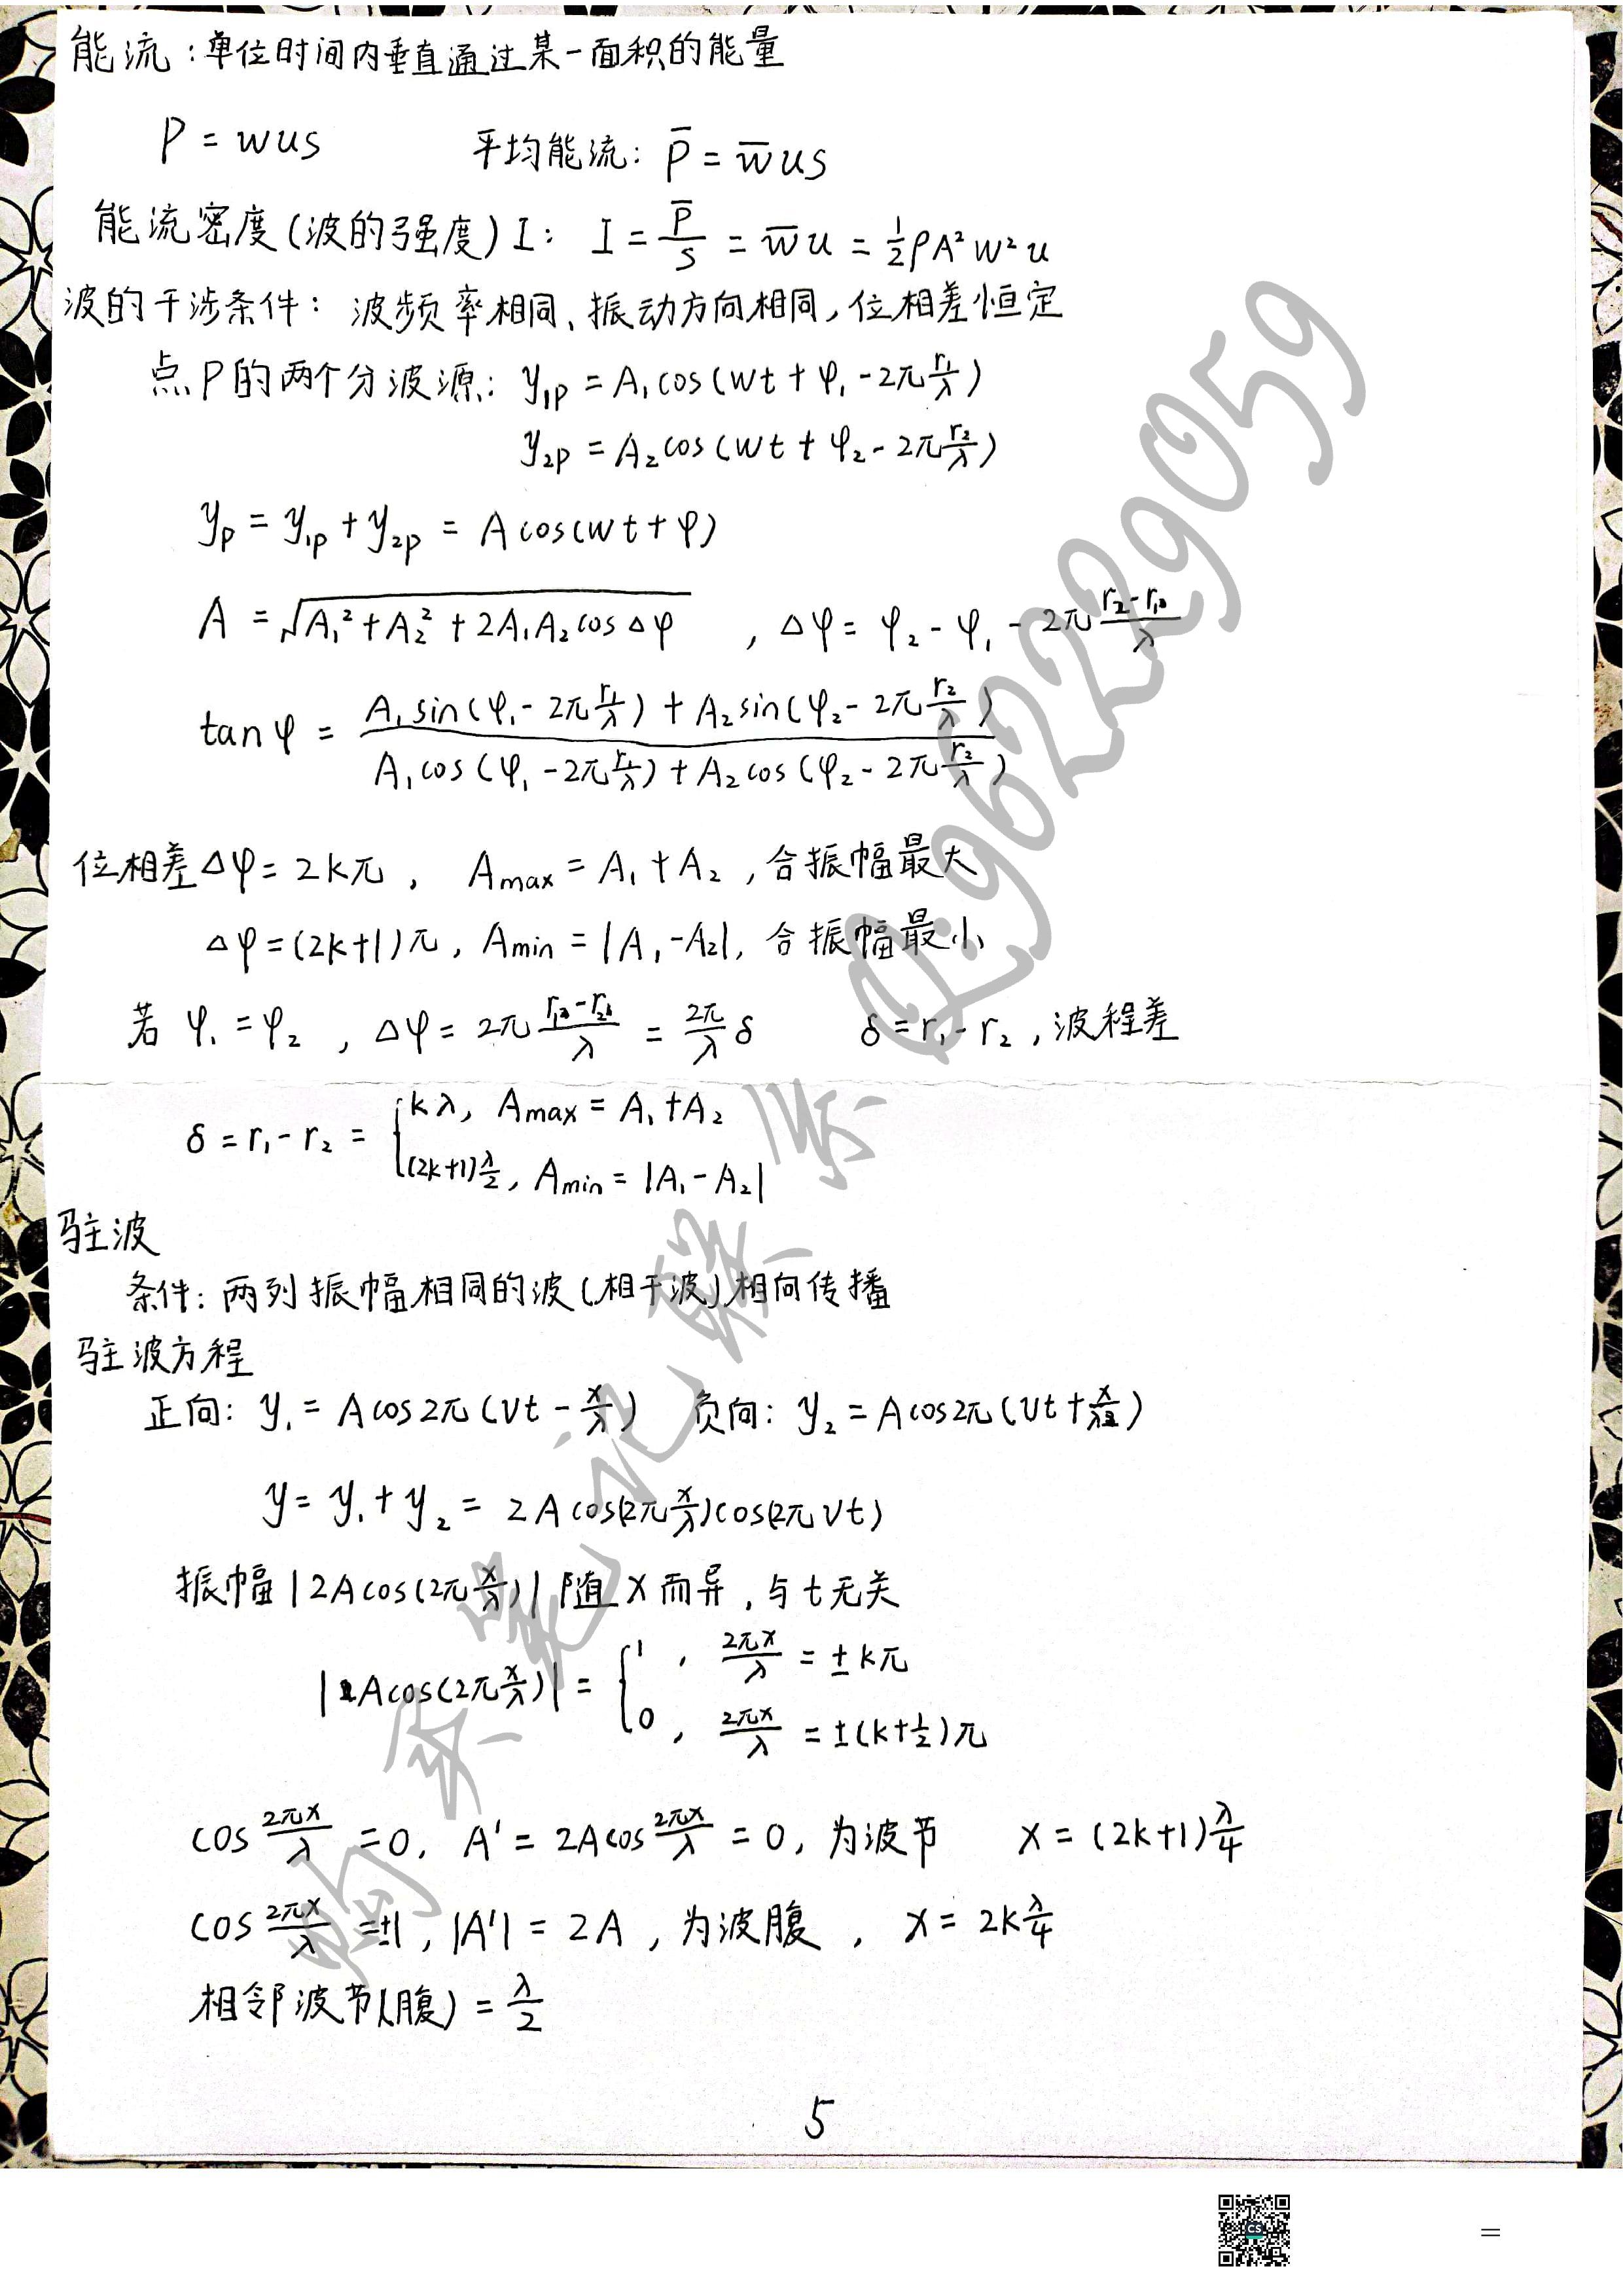 能流：单位时间内垂直通过某一面积的能量
P = wus　平均能流：P̅ = w̅us
能流密度(波的强度) I： I = P̅/S = w̅u = ½ρA²w²u
波的干涉条件：波频率相同、振动方向相同，位相差恒定
点P的两个分波源：y₁p = A₁cos(wt + φ₁ - 2π r₁/λ)
y₂p = A₂cos(wt + φ₂ - 2π r₂/λ)
yp = y₁p + y₂p = Acos(wt + φ)
A = √(A₁² + A₂² + 2A₁A₂cosΔφ) , Δφ = φ₂ - φ₁ - 2π (r₂-r₁)/λ
tanφ = [A₁sin(φ₁ - 2π r₁/λ) + A₂sin(φ₂ - 2π r₂/λ)] / [A₁cos(φ₁ - 2π r₁/λ) + A₂cos(φ₂ - 2π r₂/λ)]
位相差Δφ = 2kπ , Amax = A₁ + A₂ , 合振幅最大
Δφ = (2k+1)π , Amin = |A₁ - A₂|, 合振幅最小
若 φ₁ = φ₂ , Δφ = 2π (r₁-r₂)/λ = 2π/λ δ　δ = r₁ - r₂ , 波程差
δ = r₁ - r₂ = { kλ, Amax = A₁ + A₂
(2k+1)λ/2, Amin = |A₁ - A₂|
驻波
条件：两列振幅相同的波(相干波)相向传播
驻波方程
正向：y₁ = Acos2π(νt - x/λ)　负向：y₂ = Acos2π(νt + x/λ)
y = y₁ + y₂ = 2Acos(2π x/λ)cos(2πνt)
振幅|2Acos(2π x/λ)|随x而异, 与t无关
|2Acos(2π x/λ)| = { 1 , 2πx/λ = ±kπ
0 , 2πx/λ = ±(k+½)π
cos 2πx/λ = 0, A' = 2Acos 2πx/λ = 0, 为波节　x = (2k+1)λ/4
cos 2πx/λ = ±1, |A'| = 2A , 为波腹 , x = 2k λ/4
相邻波节(腹) = λ/2
5
购买笔记联系 Q:96229059
CS
=